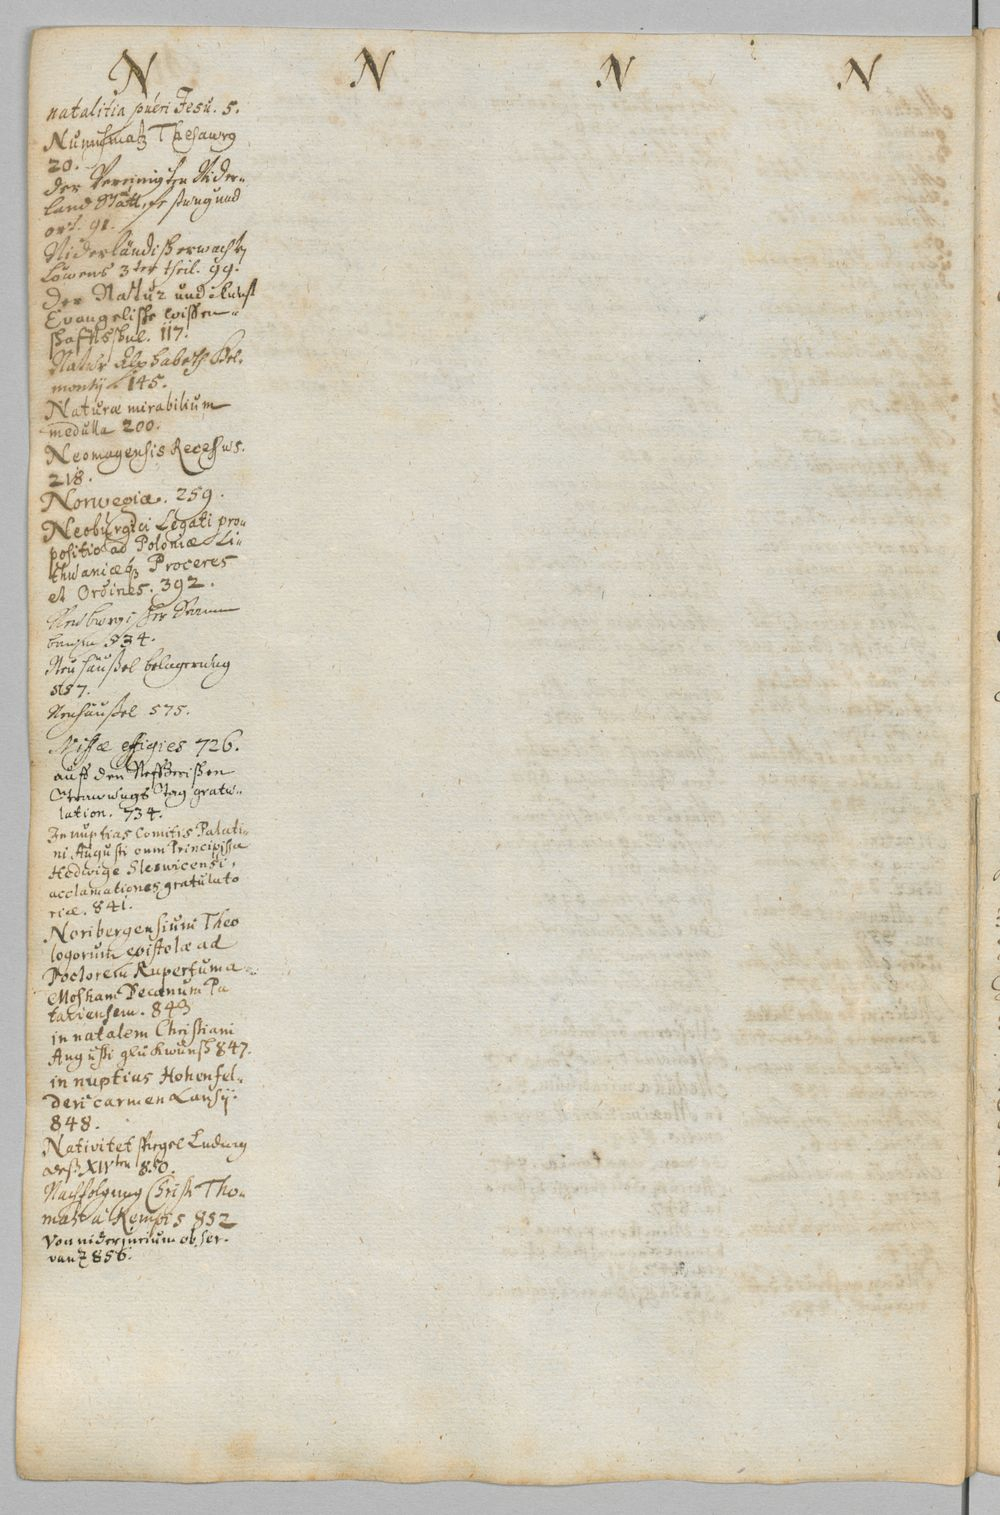 N N N N
natalitia pueri Jesu. 5.
Numismatz Thesaurg
20.
der Vereinigten Nider-
land Statt, festung und
ort. 91.
Niderländisch erwachtz
Löwens 3ter theil. 99.
Der Nattur und kunst
Evangelische wissen-
schafftsschul. 117.
Natur Alphabeth Hel-
montij 145.
Naturæ mirabilium
medulla 200.
Neomagensis Recessus.
218.
Norwegiæ. 259.
Neoburgici Legati pro-
positio ad Poloniæ Li-
thuaniæq3 Proceres
et Ordines. 392.
Neuburgischer
534.
Neuhäußel belagerung
557.
Neuhäußel 575.
effigies 726.
auff den
tag gratu-
lation. 734.
In nuptias Comitis Palati-
ni Augusti cum Principissa
Hedwige Slesvicensi,
acclamationes gratulato
riæ. 841.
Noribergensium Theo
logorum epistolæ ad
Doctorem Rupertum a
Mosham Decanum Pa
taviensem. 843
in natalem Christiani
Augusti gluckwunsch 847.
in nuptias Hohenfel-
deri carmen Lansij.
848.
Nativitet spiegel Ludwig
deß XIVten 850.
Nachfolgung Christi Tho-
mæ a Kempis 852
Von obser-
vantz 856.